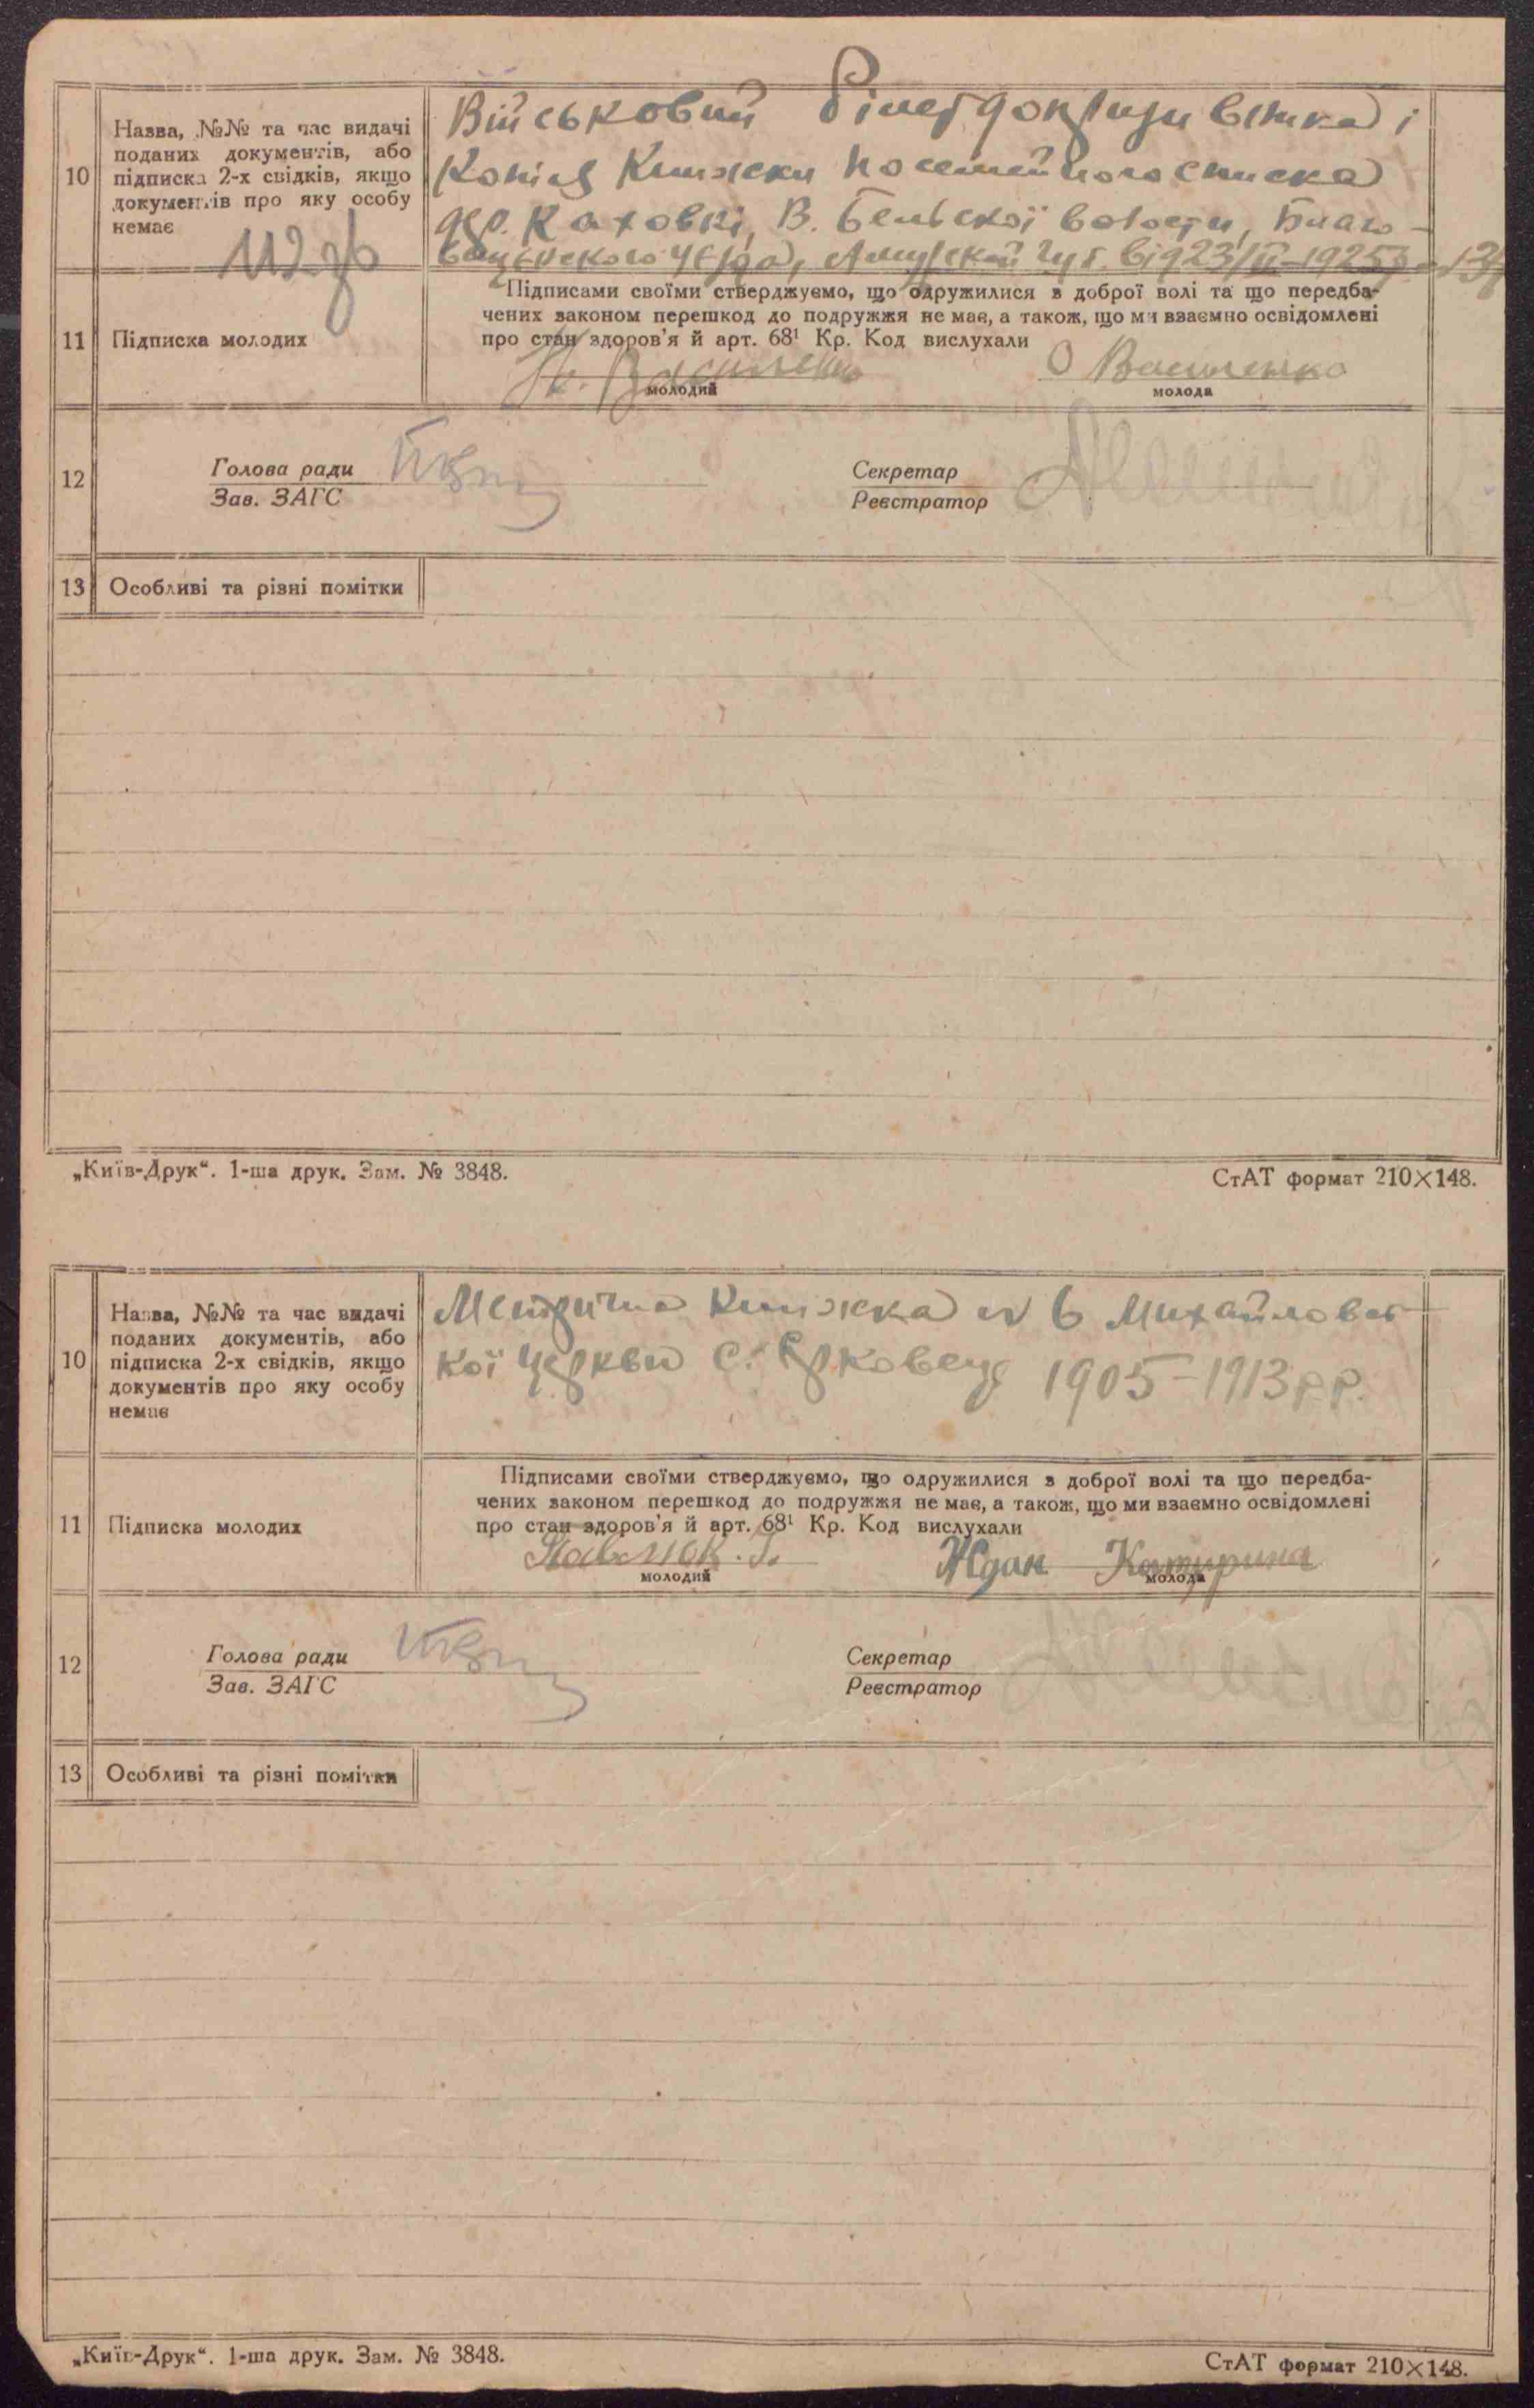 10
Назва, №№ та час видачі
поданих документів, або
підписка 2-х свідків, якщо
документів про яку особу
немає
112 зв
Військовий білет допризивника і
Копія Книжски посемейного списка
дер. Каховкі, В. Бельскої волости, Благо-
вещенского уезда, Амурской губ. від 23/ІІ-1925 р.
11
Підписка молодих
Підписами своїми стверджуємо, що одружилися з доброї волі та що передба-
чених законом перешкод до подружжя не має, а також, що ми взаємно освідомлені
про стан здоров'я й арт. 68¹ Кр. Код вислухали
Василенко О Василенко
молодий молода
12
Голова ради
Зав. ЗАГС
Секретар
Реєстратор
13 Особливі та різні помітки
„Київ-Друк“. 1-ша друк. Зам. № 3848. СтАТ формат 210×148.
10
Назва, №№ та час видачі
поданих документів, або
підписка 2-х свідків, якщо
документів про яку особу
немає
Метрична Книжка № 6 Михайловсь-
кої церкви с. Ярковець 1905-1913 р.р.
11
Підписка молодих
Підписами своїми стверджуємо, що одружилися з доброї волі та що передба-
чених законом перешкод до подружжя не має, а також, що ми взаємно освідомлені
про стан здоров'я й арт. 68¹ Кр. Код вислухали
Павлюк. Ждан Катирина
молодий молода
12
Голова ради
Зав. ЗАГС
Секретар
Реєстратор
13 Особливі та різні помітки
„Київ-Друк“. 1-ша друк. Зам. № 3848. СтАТ формат 210×148.